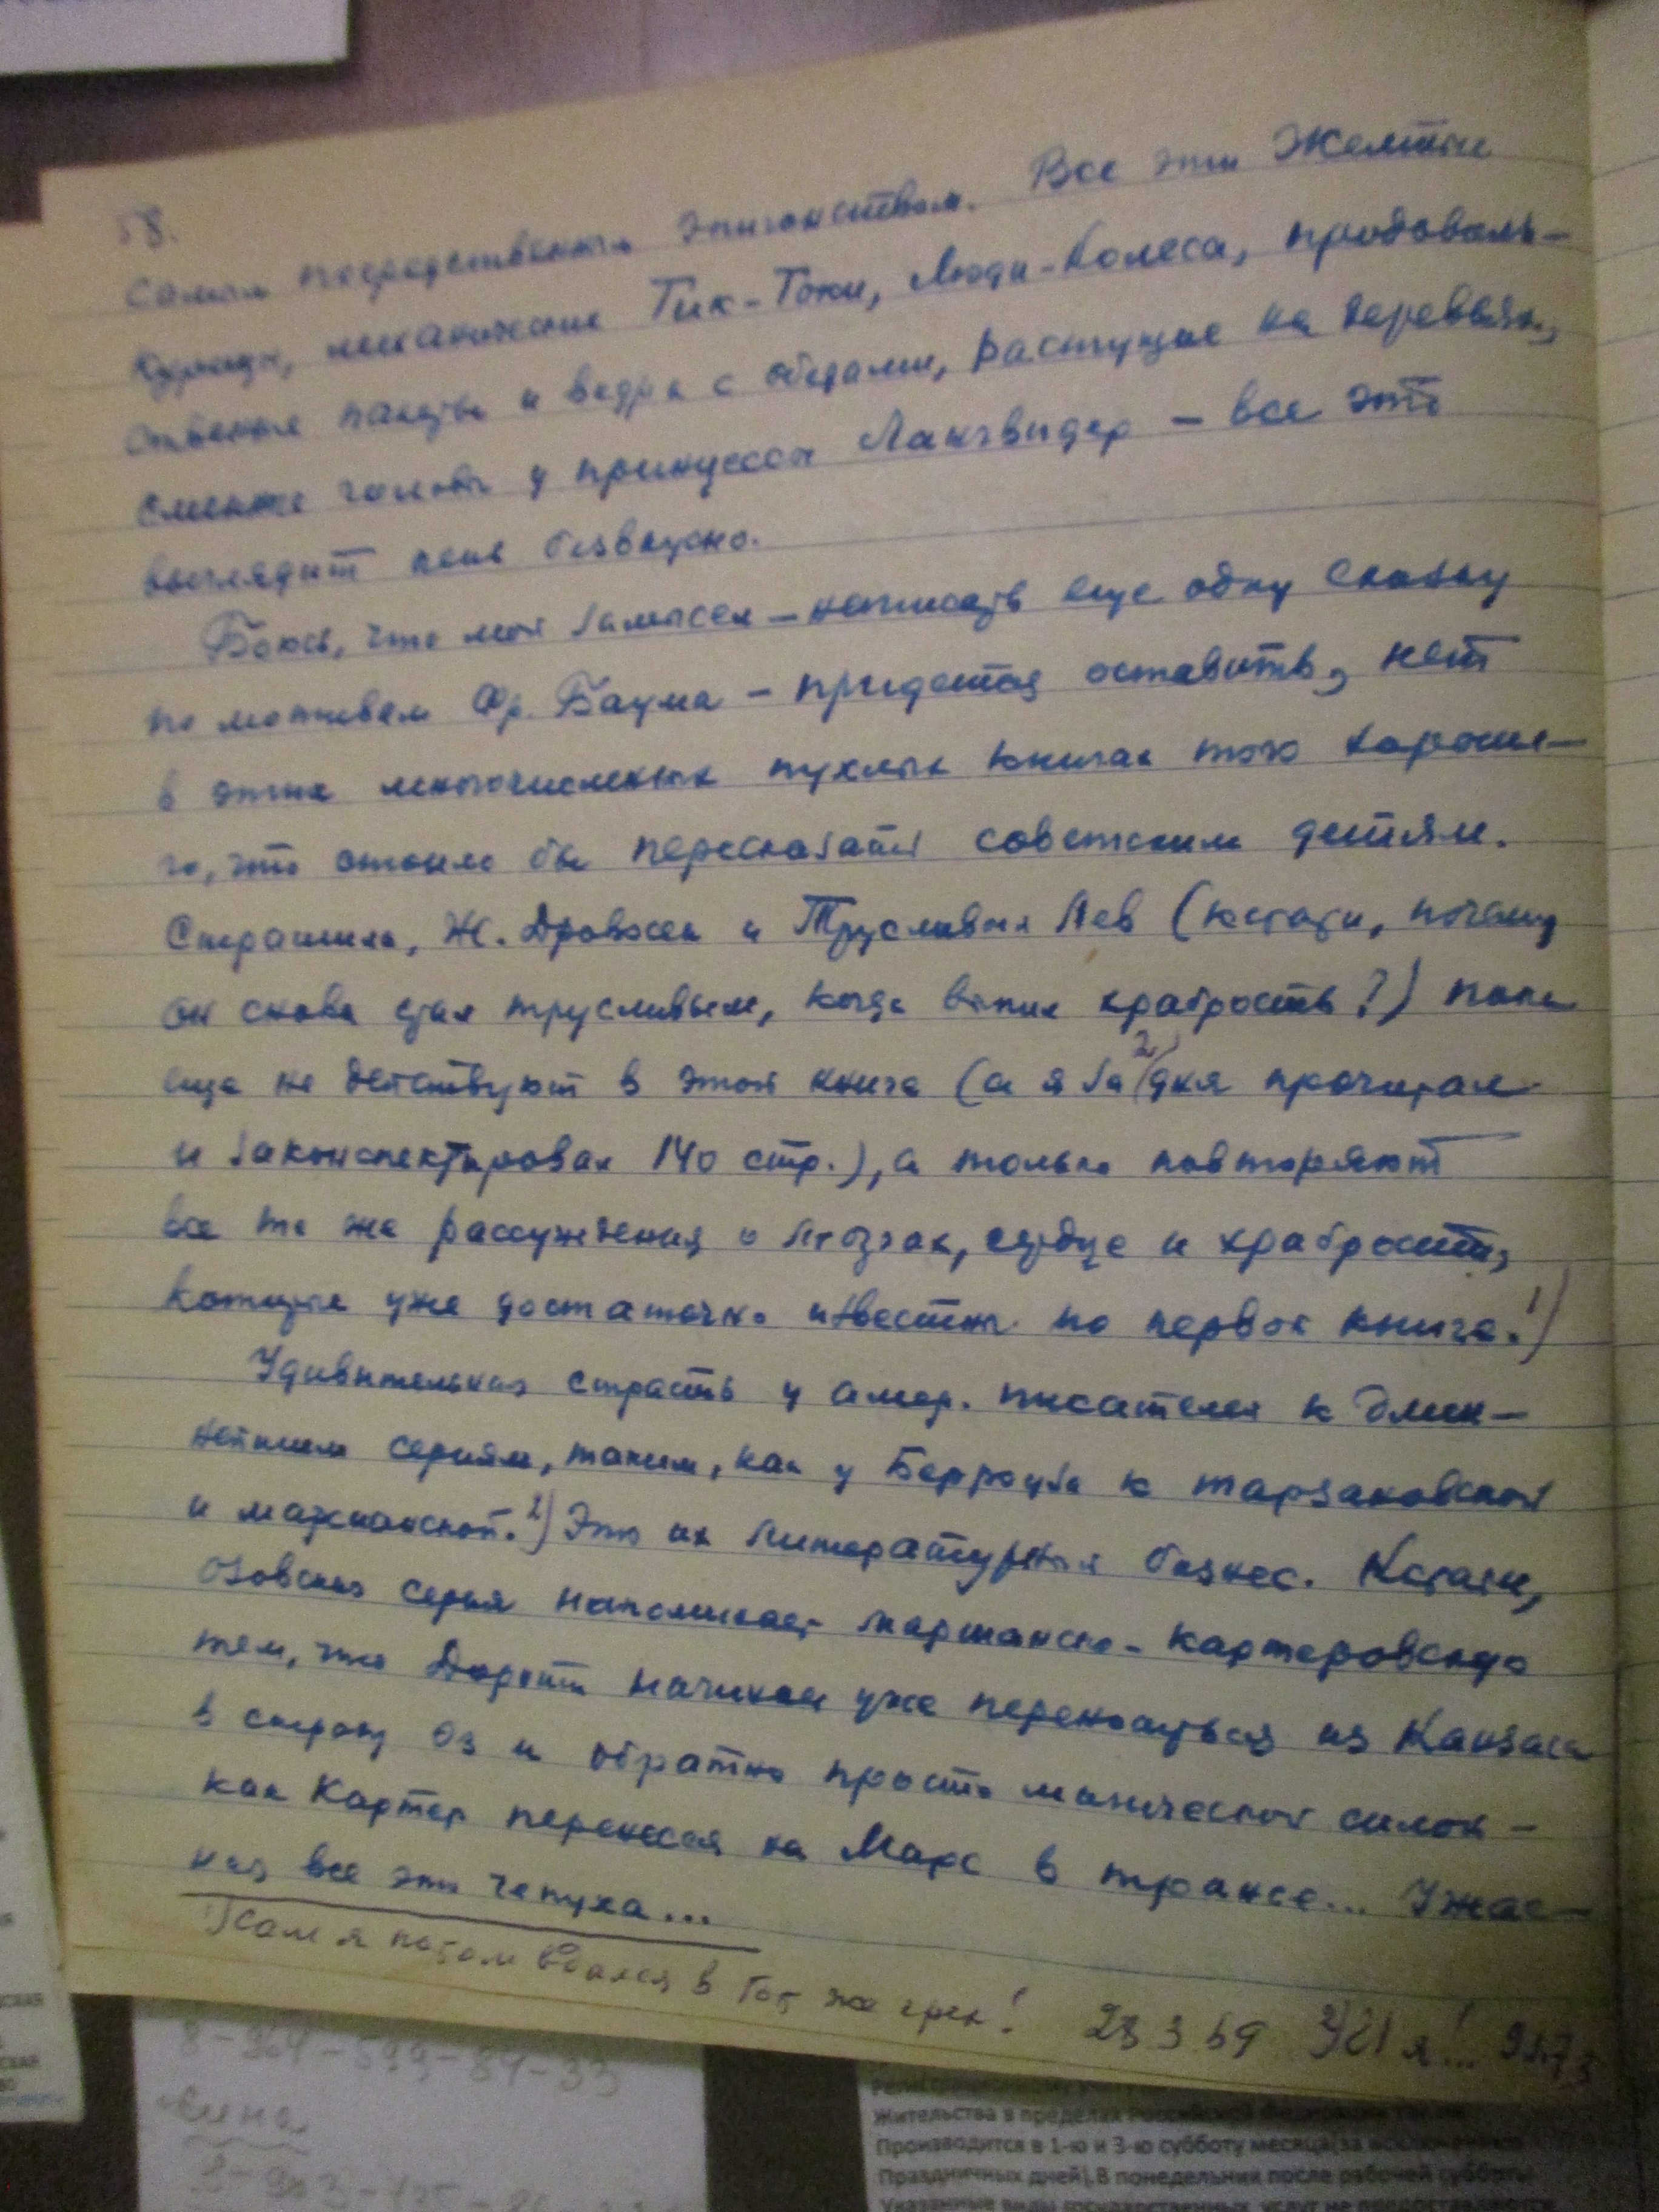 58.
самым посредственным эпигонством. Все эти Желтые
Курицы, механические Тик-Токи, Люди-Колеса, продоволь-
ственные пакеты и ведра с обедами, растущие на деревьях,
сменные головы у принцессы Лангвидер – все это
выглядит безвкусно.
Боюсь, что мой замысел – написать еще одну сказку
по мотивам Фр. Баума – придется оставить, нет
в этих многочисленных пухлых книгах того хороше-
го, что стоило бы пересказать советским детям.
Страшила, Ж. Дровосек и Трусливый Лев (кстати, почему
он снова стал трусливым, когда выпил храбрость?) пока
еще не действуют в этой книге (а я за 2 дня прочитал
и законспектировал 140 стр.), а только повторяют
все те же рассуждения о мозгах, сердце и храбрости,
которые уже достаточно известны по первой книге. 1)
Удивительная страсть у амер. писателей к длин-
нейшим сериям, таким, как у Берроуза к тарзановской
и марсианской. 2) Это их литературный бизнес. Кстати,
Озовская серия напоминает марсианско-картеровскую
тем, что Дороти начинает уже переноситься из Канзаса
в страну Оз и обратно просто магической силой –
как Картер перенесся на Марс в трансе... Ужас-
ная все это чепуха...
Сам я потом впался в тот же грех! 28 3 69 2) И я!...
8-964-599-84-33
Жительства в пределах Российской Федерации
Производится в 1-ю и 3-ю субботу месяца(за исключением
Праздничных дней).В понедельник после рабочей субботы
Указанные виды государственных услуг не